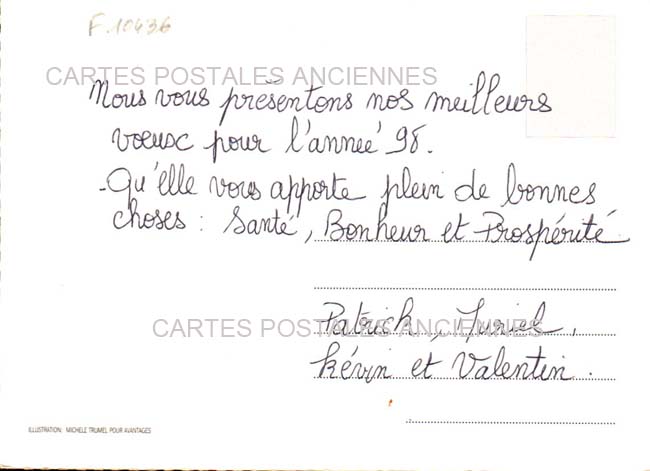 F.10436
CARTES POSTALES ANCIENNES
Nous vous présentons nos meilleurs
vœux pour l'année 98.
Qu'elle vous apporte plein de bonnes
choses : Santé, Bonheur et Prospérité
Patrick, Muriel,
CARTES POSTALES ANCIENNES
Kévin et Valentin.
ILLUSTRATION: MICHELE TRUMEL POUR AVANTAGES